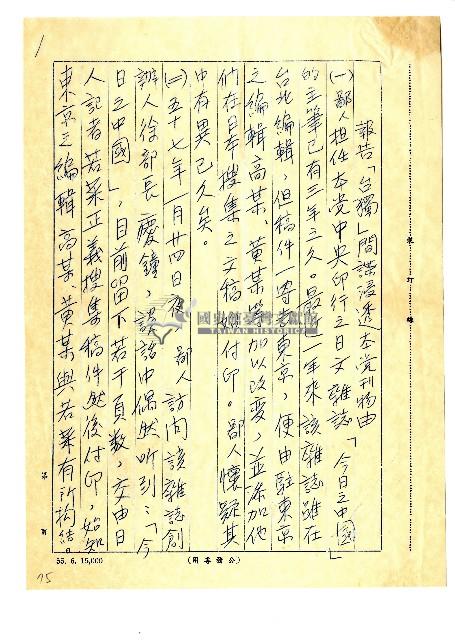 報告「台獨」間諜浸透本党刊物由
(一) 鄙人担任本党中央印行之日文雜誌「今日之中國」
的主筆已有三年之久。最近一年來該雜誌雖在
台北編輯，但稿件一寄至東京，便由駐東京
之編輯高某、黃某等加以改變，並添加他
們在日本搜集之文稿始付印。鄙人懷疑其
中有異已久矣。
(二) 五十七年一月廿四日 鄙人訪問該雜誌創
辦人徐部長慶鐘，談話中偶然听到：「今
日之中國」，目前留下若干頁数，交由日
人記者若菜正義搜集稿件然後付印，始知
東京之編輯高某黃某與若菜有所构結。
裝
訂
線
第 頁
55. 6. 15,000
(公務委用)
國史館臺灣文獻館
TAIWAN HISTORICA
1
75